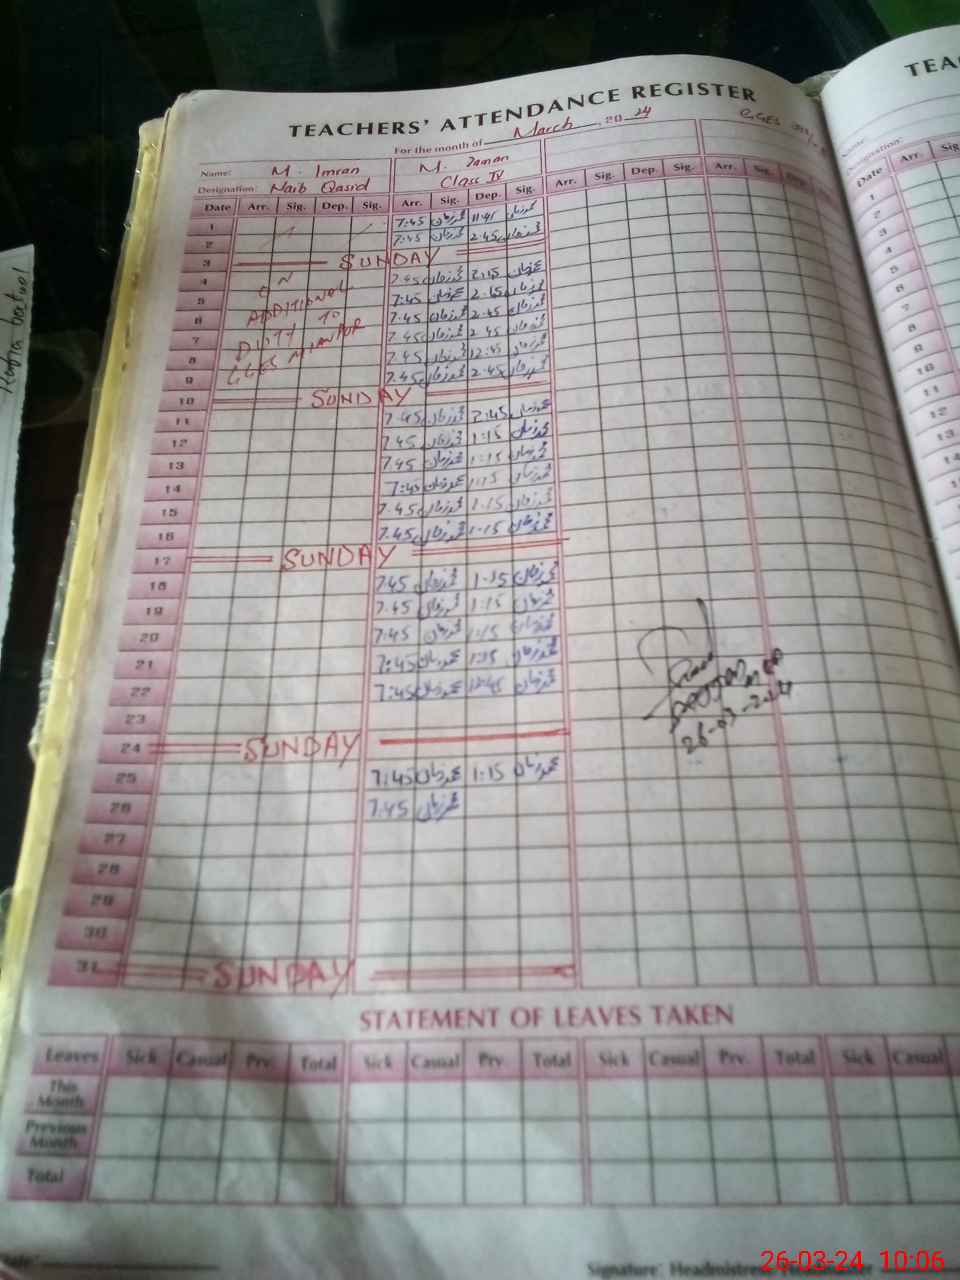 TEACHERS' ATTENDANCE REGISTER
TEA
For the month of March, 2024
GGES
Name: M. Imran M. Zaman
Designation: Naib Qasid Class IV
Date Arr. Sig. Dep. Sig. Arr. Sig. Dep. Sig. Arr. Sig. Dep. Sig. Arr. Sig. Sig.
Date Arr. Sig.
1 7:45 محمد زمان 11:45 محمد زمان
2 7:45 محمد زمان 2:45 محمد زمان
3 SUNDAY
4 ON 7:45 محمد زمان 2:45 محمد زمان
5 ADDITIONAL 7:45 محمد زمان 2:45 محمد زمان
6 DUTY TO 7:45 محمد زمان 2:45 محمد زمان
7 GGES MIANPUR 7:45 محمد زمان 2:45 محمد زمان
8 7:45 محمد زمان 12:45 محمد زمان
9 7:45 محمد زمان 2:45 محمد زمان
10 SUNDAY
11 7:45 محمد زمان 2:45 محمد زمان
12 7:45 محمد زمان 1:15 محمد زمان
13 7:45 محمد زمان 1:15 محمد زمان
14 7:45 محمد زمان 1:15 محمد زمان
15 7:45 محمد زمان 1:15 محمد زمان
16 7:45 محمد زمان 1:15 محمد زمان
17 SUNDAY
18 7:45 محمد زمان 1:15 محمد زمان
19 7:45 محمد زمان 1:15 محمد زمان
20 7:45 محمد زمان 1:15 محمد زمان
21 7:45 محمد زمان 1:15 محمد زمان
22 7:45 محمد زمان 12:45 محمد زمان
23
26-03-2024
24 SUNDAY
25 7:45 محمد زمان 1:15 محمد زمان
26 7:45 محمد زمان
27
28
29
30
31 SUNDAY
STATEMENT OF LEAVES TAKEN
Leaves Sick Casual Prv. Total Sick Casual Prv. Total Sick Casual Prv. Total Sick Casual
This Month
Previous Month
Total
Signature: Headmistress
26-03-24 10:06